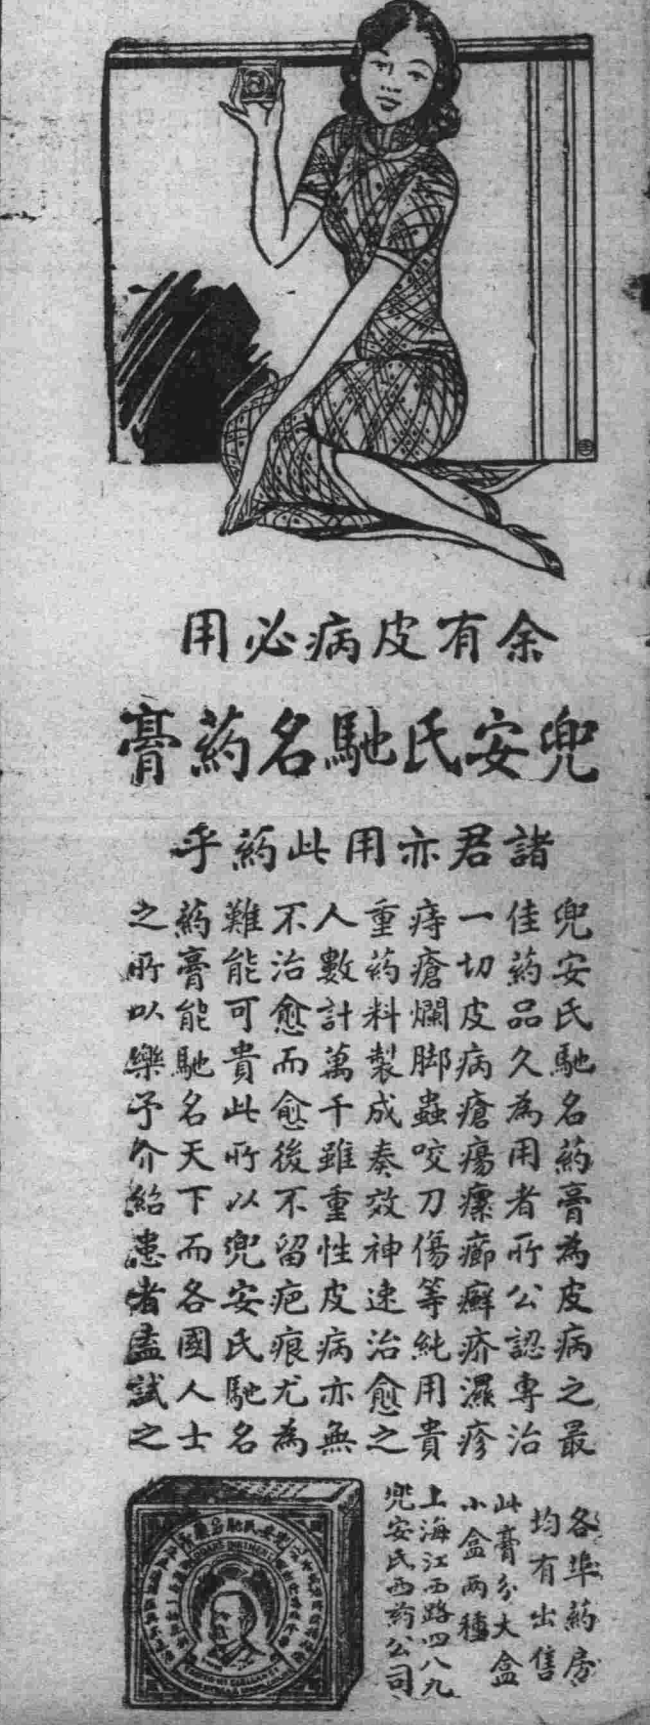 余有皮病必用
兜安氏馳名药膏
諸君亦用此药乎
兜安氏馳名药膏為皮病之最
佳药品久為用者所公認專治
一切皮病瘡瘍瘰癤癬疥濕疹
痔瘡爛脚蟲咬刀傷等純用貴
重药料製成奏效神速治愈之
人數計萬千雖重性皮病亦無
不治愈而愈後不留疤痕尤為
難能可貴此所以兜安氏馳名
药膏能馳名天下而各國人士
之所以樂予介紹患者盍試之
各埠药房
均有出售
此膏分大盒
小盒兩種
上海江西路四八九
兜安氏西药公司
兜安氏馳名药膏
OINTMENT